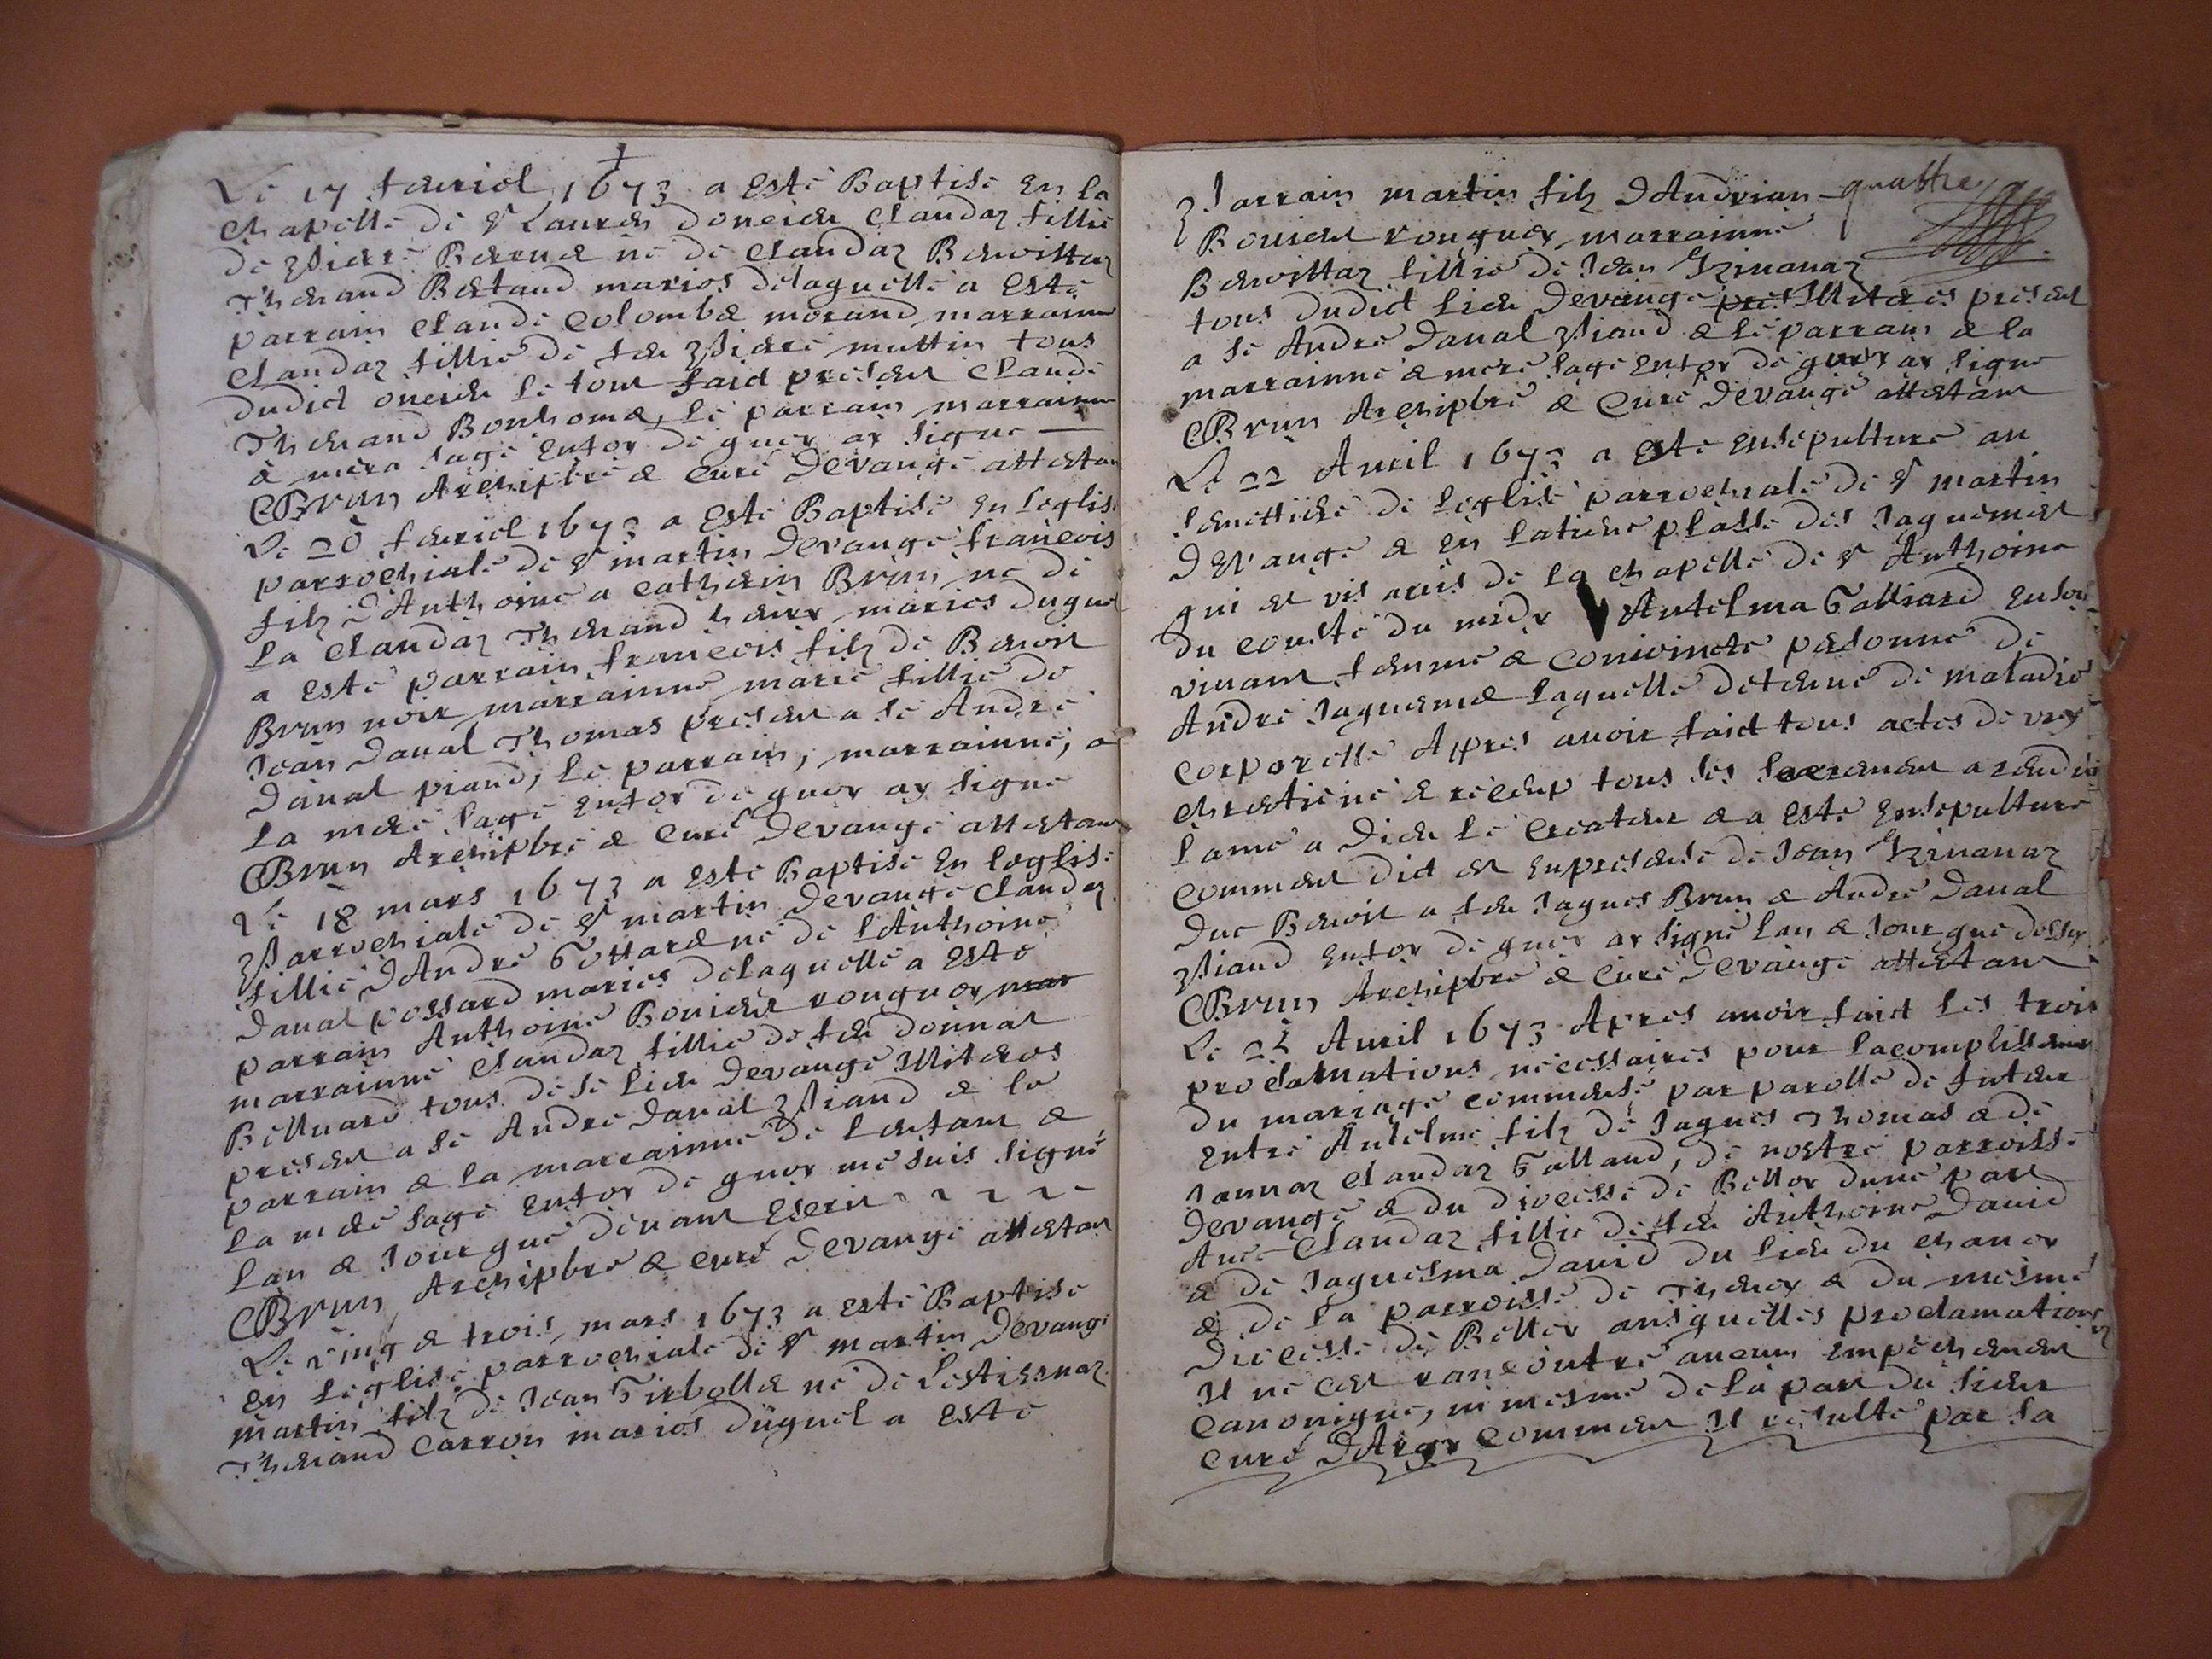 Le 17 feuriel 1673 a Esté Baptisé En la
chapelle de St Lauren doneieu claudaz fillie
de Pierre Bernet né de claudaz Benoittaz
Theuand Betaud marios delaquelle a Esté
parrain claude colombet morand marrainne
claudaz fillie de feu Pierre muttin tous
dudict oneieu le tout faict presen claude
Theuand Bonhome, le parrain marrainne
& mera sage Enfoy de quoy ay signe
CBrun Archiptre & curé devange attestan
Le 20 feuriel 1673 a Esté Baptisé En leglise
parrochiale de St martin devange francois
filz dAnthoine a catherin Brun né de
la claudaz Theuand heurx maries duquel
a Esté parrain francois filz de Benoit
Brun noir marrainne marie fillie de
Jean daual Thomas presen a sé André
daual piand, le parrain, marrainne, &
la mere sage Enfoy de quoy ay signe
CBrun Archiptre & curé devange attestant
Le 18 mars 1673 a Esté Baptisé En leglise
Parrochiale de St martin devange claudaz
fillie dAndré Gottaret né de lAnthoine
daual possard maries delaquelle a Esté
parrain Anthoine Bouiet rouquey mar
marrainne claudaz fillie de feu donnat
Belluard tous de se lieu devange Illiteros
presen a sé André daual Piand & le
parrain & la marrainne de lenfant &
la mere sage Enfoy de quoy me suis signé
lan & Jour que deuant Escrit
CBrun Archiptre & curé devange attestant
Le ving & trois mars 1673 a esté Baptisé
En leglise parrochiale de St martin devange
martin filz de Jean Girbollet né de Lestiennaz
Theuand carron marios duquel a Esté
Parrain martin filz dAndrian quattre
Bouiet rouquey marrainne
Benoittaz fillie de Jean
tous dudict lieu devange pres Illiteros presen
a sé André daual Piand & le parrain & la
marrainne & mere sage Enfoy de quoy ay signe
CBrun Archiptre & curé devange attestant
Le 22 Auril 1673 a Esté Ensepulture au
semettiere de leglise parrochiale de St martin
devange & En latiere plasse des Jaquemet
qui et vis auis de la chapelle de St Anthoine
du couste du midy Antelma Galliard Enson
viuant femme & conioincte personne de
André Jaquemet laquelle detenue de maladie
corporelle Appres auoir faict tous actes de vray
chrestiene & receup tous les sacremen a rendu
lame a Dieu le createur & a Esté Ensepulture
commen dict et Enpresense de Jean
duc Benoit a feu Jaques Brun & André daual
Piand Enfoy de quoy ay signé lan & Jour que dessu
CBrun Archiptre & curé devange attestant
Auril 1673 Apres auoir faict les trois
proclamations necessaires pour lacomplissemen
du mariage commensé par parolle de futeur
Entre Antelme filz de Jaques Thomas & de
Jannaz claudaz Galland, de nostre parroisse
devange & du diocesse de Belley dune part
Auec Claudaz fillie de feu Anthoine dauid
& de Jaquesma dauid du lieu du chaney
& de la parroisse de Theney & du mesme
diocesse de Belley ausquelles proclamations
Il ne cet rancontre aucun Empechemen
canonique, ni mesme de la part du sieur
curé dArgy commen Il resulte par la